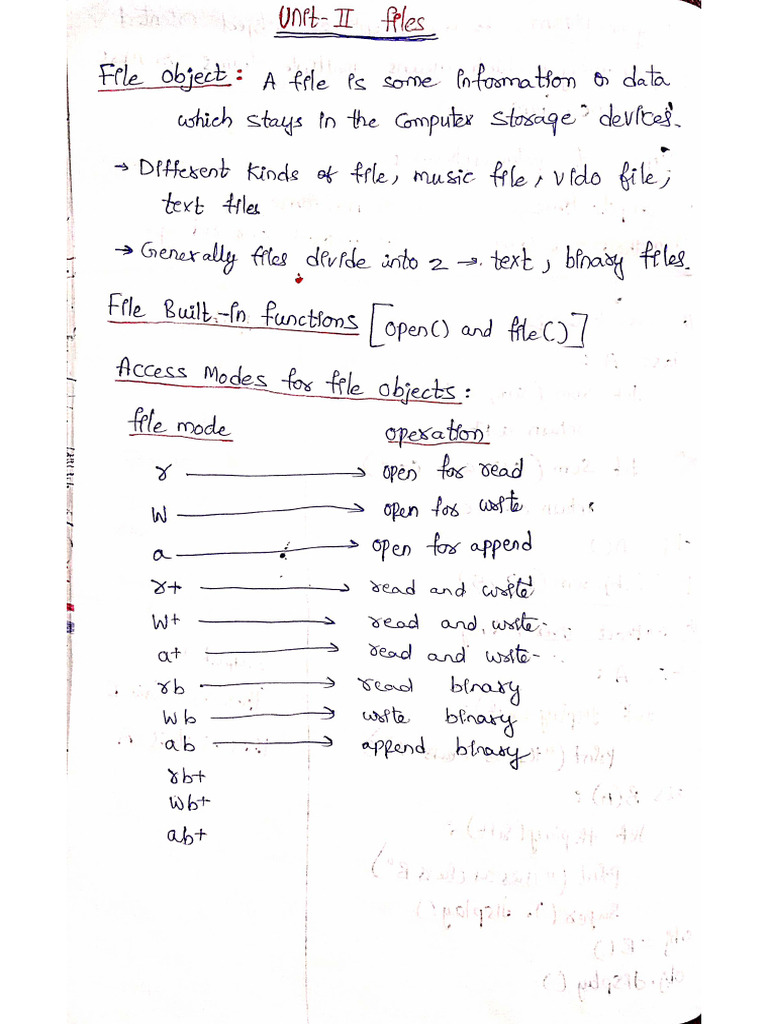 Unit-II files
File Object: A file is some information or data
which stays in the computer storage devices.
→ Different kinds of file, music file, vido file,
text files
→ Generally files divide into 2 → text, binary files.
File Built-in functions [open() and file()]
Access Modes for file objects:
file mode operation:
r → open for read
w → open for write
a → open for append
r+ → read and write
w+ → read and write
a+ → read and write
rb → read binary
wb → write binary
ab → append binary
rb+
wb+
ab+